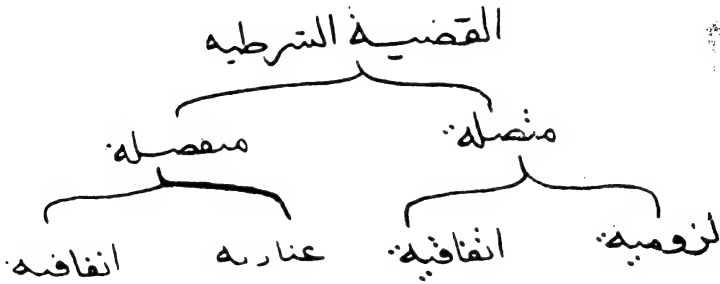 القضية الشرطيه
متصلة منفصله
لزومية اتفاقية عناديه اتفاقيه